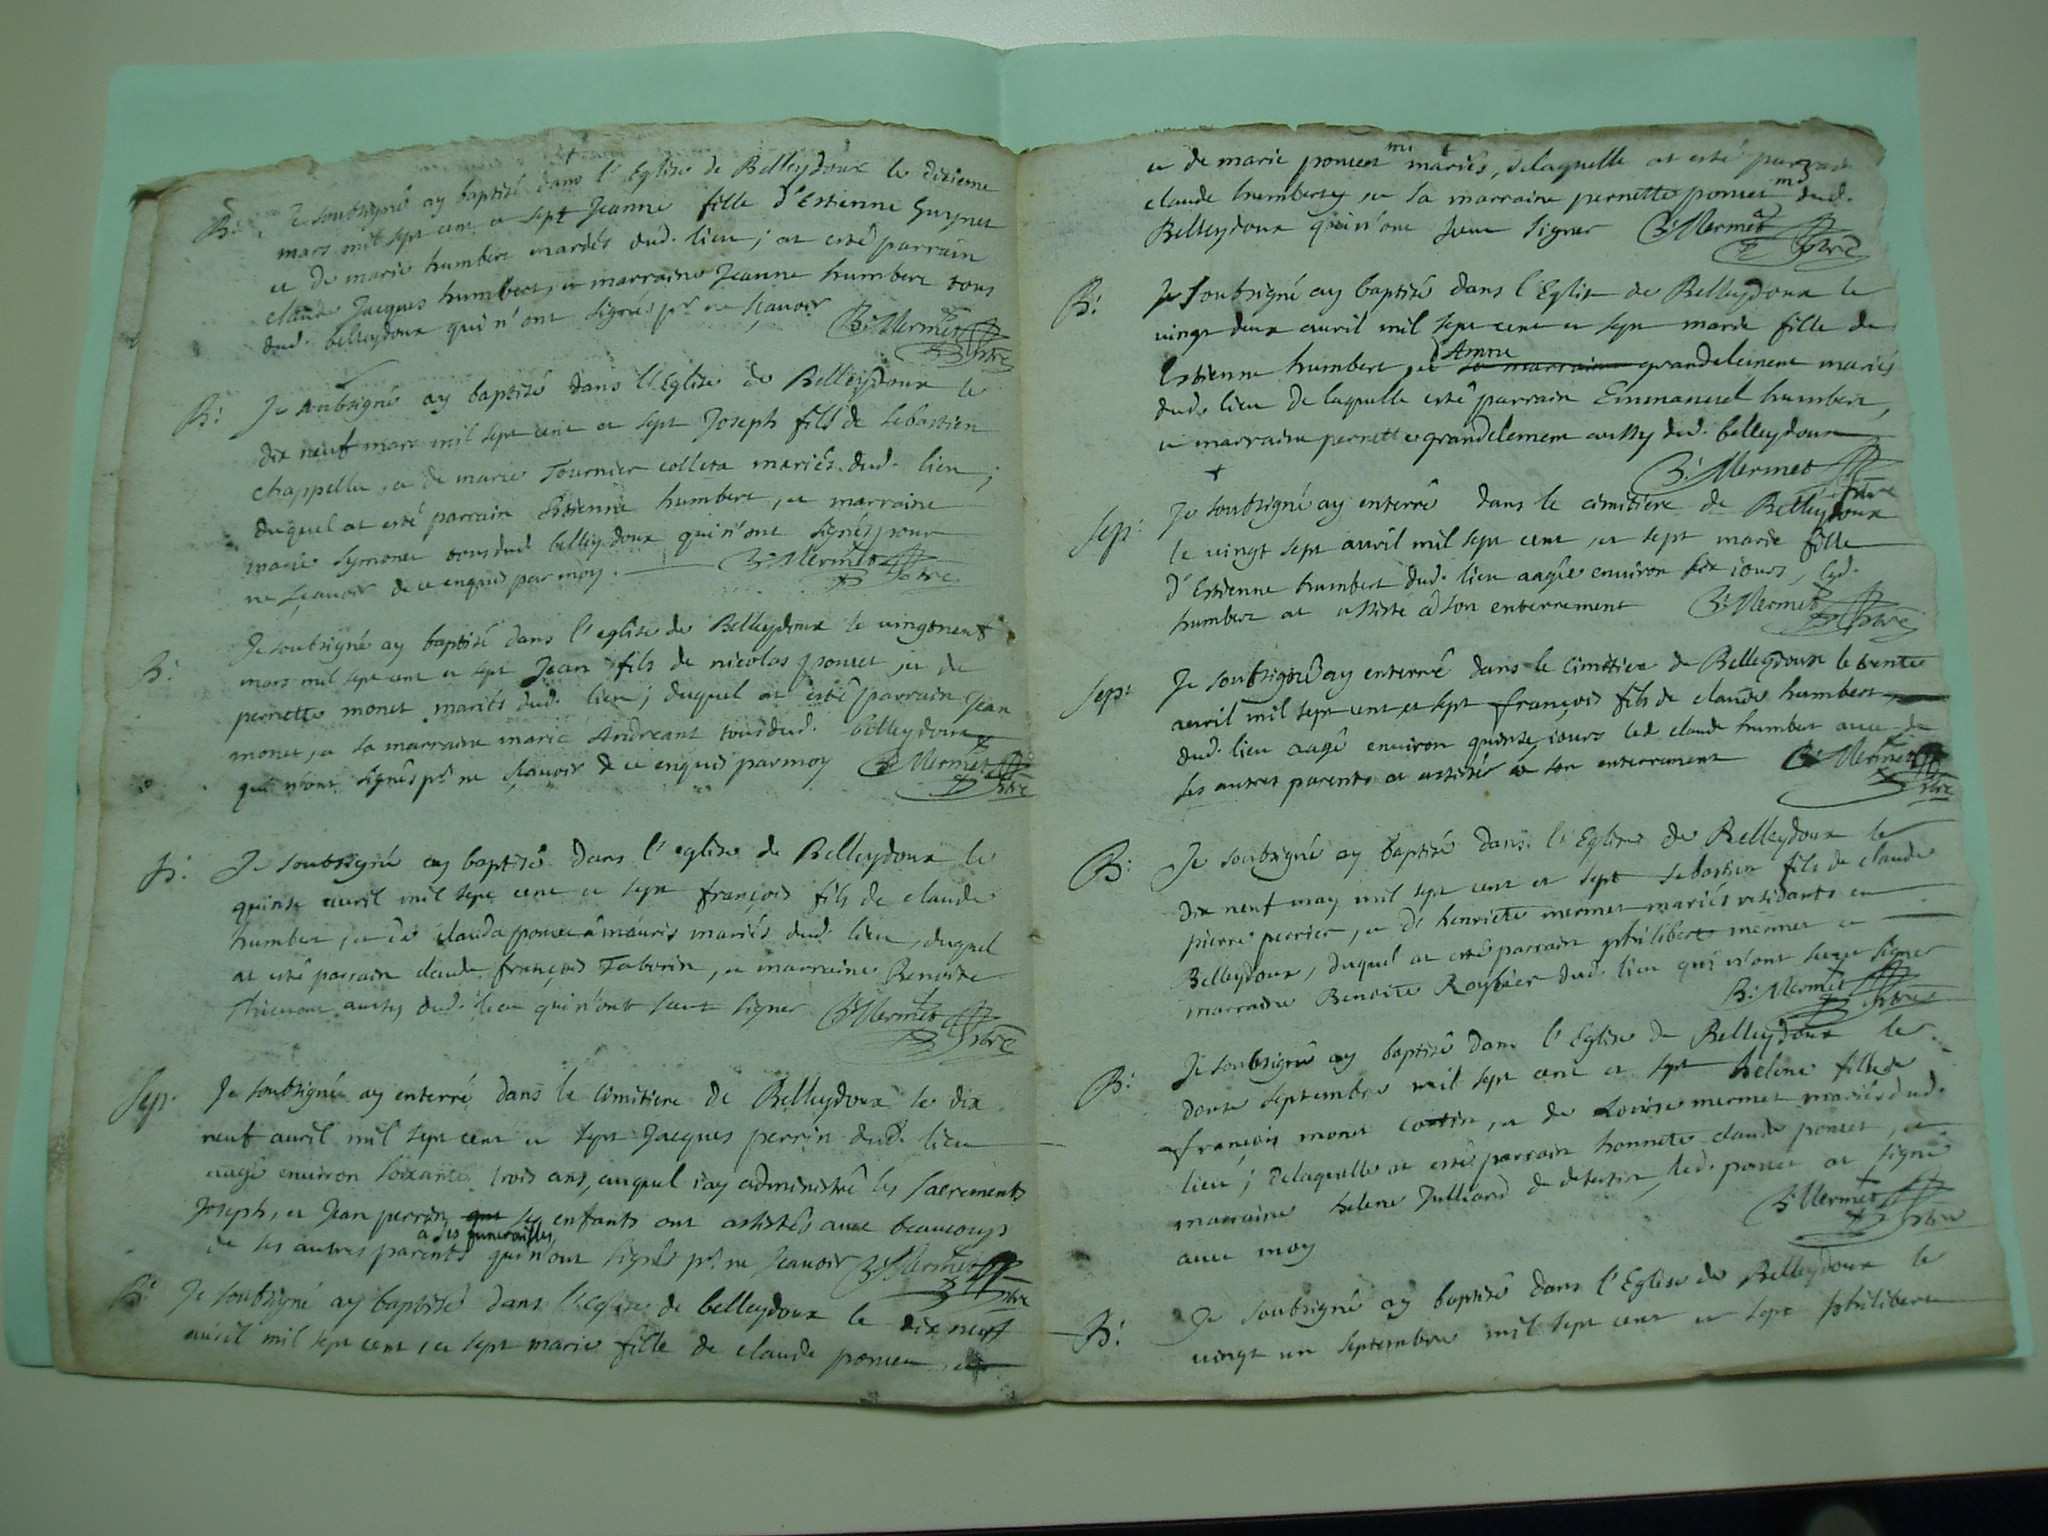 B: Je soubsigné ay baptisé dans l'Eglise de Belleydoux le dixieme
mars mil sept cent et sept Jeanne fille d'Estienne Guynet
et de marie humbert mariés dud. lieu; at esté parrain
claude Jacques humbert, et marraine Jeanne humbert tous
dud. belleydoux qui n'ont signés pr. ne sçavoir B: Mermet ptre
B: Je soubsigné ay baptisé dans l'Eglise de Belleydoux le
dix neuf mars mil sept cent et sept Joseph fils de sebastien
chappellu, et de marie Tournier colleta mariés dud. lieu;
duquel at esté parrain Estienne humbert, et marraine
marie symonet tous dud. belleydoux qui n'ont signés pour
ne sçavoir de ce enquis par moy. B: Mermet ptre
B: Je soubsigné ay baptisé dans l'eglise de Belleydoux le vingtneuf
mars mil sept cent et sept Jean fils de nicolas poncet, et de
pernette monet mariés dud. lieu; duquel at esté parrain Jean
monet, et sa marraine marie Andreant tous dud. belleydoux
qui n'ont signés pr. ne sçavoir de ce enquis par moy B: Mermet ptre
B: Je soubsigné ay baptisé dans l'eglise de Belleydoux le
quinse avril mil sept cent et sept françois fils de claude
humbert, et de clauda poncet mariés dud. lieu, duquel
at esté parrain claude françois Taborin, et marraine Benoite
aussy dud. lieu qui n'ont sceut signer B: Mermet ptre
Sep: Je soubsigné ay enterré dans le cimitiere de Belleydoux le dix
neuf avril mil sept cent et sept Jacques perrin dud. lieu
aagé environ soixante trois ans, auquel i'ay administré les sacrements
Joseph, et Jean perrin ses enfants ont assistés avec beaucoup
a ses funerailles,
de ses autres parents qui n'ont signés pr. ne scavoir B: Mermet ptre
B: Je soubsigné ay baptisé dans l'eglise de belleydoux le dix neuf
avril mil sept cent, et sept marie fille de claude poncet, et
et de marie poncet mariés, delaquelle at esté parrain
claude humbert et sa marraine pernette poncet dud.
Belleydoux qui n'ont sceut signer B: Mermet ptre
B: Je soubsigné ay baptisé dans l'Eglise de Belleydoux le
vingt deux avril mil sept cent et sept marie fille de
Anne
Estienne humbert, et sa marraine grandclement mariés
dud. lieu de laquelle esté parrain Emmanuel humbert,
et marraine pernette grandclement aussy dud. belleydoux
B: Mermet ptre
Sep: Je soubsigné ay enterré dans le cimitiere de Belleydoux
le vingt sept avril mil sept cent, et sept marie fille
d'Estienne humbert dud. lieu aagée environ six iours, led.
humbert at assisté a son enterrement B: Mermet ptre
Sep: Je soubsigné ay enterré dans le cimitiere de Belleydoux le trente
avril mil sept cent, et sept françois fils de claude humbert
dud. lieu aagé environ quinse iours led. claude humbert avec
ses autres parents at assisté a son enterrement B: Mermet ptre
B: Je soubsigné ay baptisé dans l'Eglise de Belleydoux le
dix neuf may mil sept cent et sept sebastien fils de claude
pierre perrier, et de henriette mermet mariés residants en
Belleydoux, duquel at esté parrain philibert mermet et
marraine Benoite Roybier dud. lieu qui n'ont sceut signer
B: Mermet ptre
B: Je soubsigné ay baptisé dans l'Eglise de Belleydoux le
douze septembre mil sept cent et sept helene fille de
françois monet cottin, et de Louise mermet mariés dud.
lieu; delaquelle at esté parrain honnete claude poncet, et
marraine helene Julliard de desertin, led. poncet at signé
avec moy B: Mermet ptre
B: Je soubsigné ay baptisé dans l'Eglise de Belleydoux le
vingt un septembre mil sept cent et sept philibert